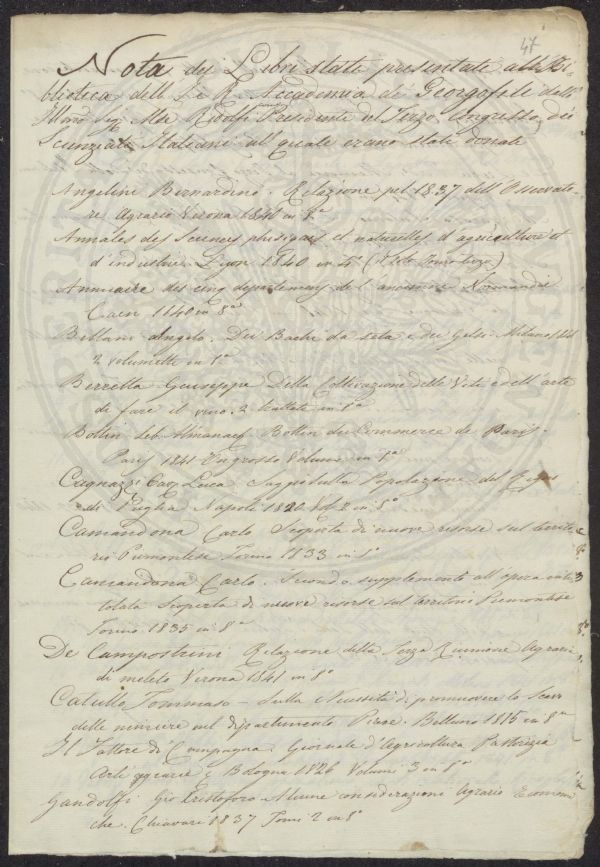 47
Nota dei Libri stati presentati alla Bi-
blioteca dell' I. e R. Accademia dei Georgofili dall'
Illmo Sig. Mse Ridolfi Presidente del Terzo Congresso dei
Scienziati Italiani al quale erano stati donati
Angelini Bernardino. Relazione pel 1837 dell'Osservato-
re Agrario Verona 1840 in 8°
Annales des Sciences phisiques et naturelles d'agriculture et
d'industrie Lyon 1840 in 4° (il Tomo
Annuaire des cinq departemens de l'ancienne Normandie
Caen 1840 in 8°
Bellani Angelo. Dei Bachi da seta e dei Gelsi. Milano
2 volumetti in
Berretta Giuseppe Della Coltivazione delle Viti e dell'arte
di fare il vino. 2 trattati in 8°
Bottin Seb. Almanach Bottin du Commerce de Paris
Paris 1841 Un grosso Volume in
Cagnazzi Luca Saggio sulla Popolazione del Regno
di Puglia Napoli 1820 Vol. 2 in 8°
Camandona Carlo Scoperta di nuove risorse sul territo-
rio Piemontese Torino 1833 in 8°
Camandona Carlo. Secondo supplemento all'opera inti-
tolata Scoperta di nuove risorse sul territorio Piemontese
Torino 1835 in 8°
De Campostrini Relazione della Terza Riunione Agraria
di Meleto Verona 1841 in 8°
Catullo Tommaso - Sulla Necessità di promuovere lo Scavo
delle miniere nel dipartimento Piave. Belluno 1815 in 8°
Il Fattore di Campagna. Giornale d'Agricoltura Pastorizia
Arti agrarie Bologna 1826 Volumi 3 in 8°
Gandolfi Gio Cristoforo Alcune considerazioni Agrario Economi
che. Chiavari 1837 Tomi 2 in 8°